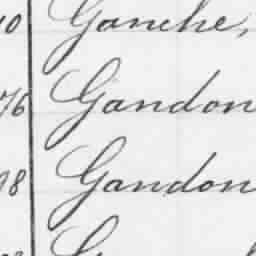 10 Ganche,
76 Gandon
98 Gandon